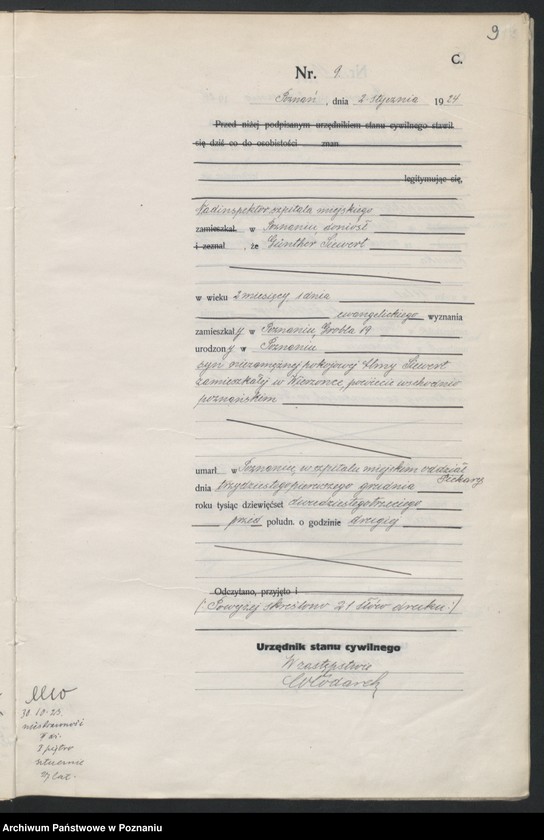 9
C.
Nr. 9.
Poznań, dnia 2 stycznia 1924
Przed niżej podpisanym urzędnikiem stanu cywilnego stawił
się dziś co do osobistości znan
legitymując się,
Nadinspektor szpitala miejskiego
zamieszkał. w Poznaniu, doniósł
i zeznał, że Günther Siewert
w wieku 2 miesięcy 1 dnia
ewangelickiego wyznania
zamieszkały w Poznaniu, Grobla 19
urodzony w Poznaniu
syn niezamężnej pokojowej Siewert
zamieszkałej w powiecie wschodnio
poznańskim
umarł w Poznaniu, w szpitalu miejskim oddział
Piekary
dnia trzydziestego pierwszego grudnia
roku tysiąc dziewięćset dwudziestego trzeciego
przed połudn. o godzinie drugiej
Odczytano, przyjęto i
(Powyżej skreślono 21 słów druku.)
Urzędnik stanu cywilnego
W zastępstwie
Włodarek
30.10.23.
9 lat.
Archiwum Państwowe w Poznaniu